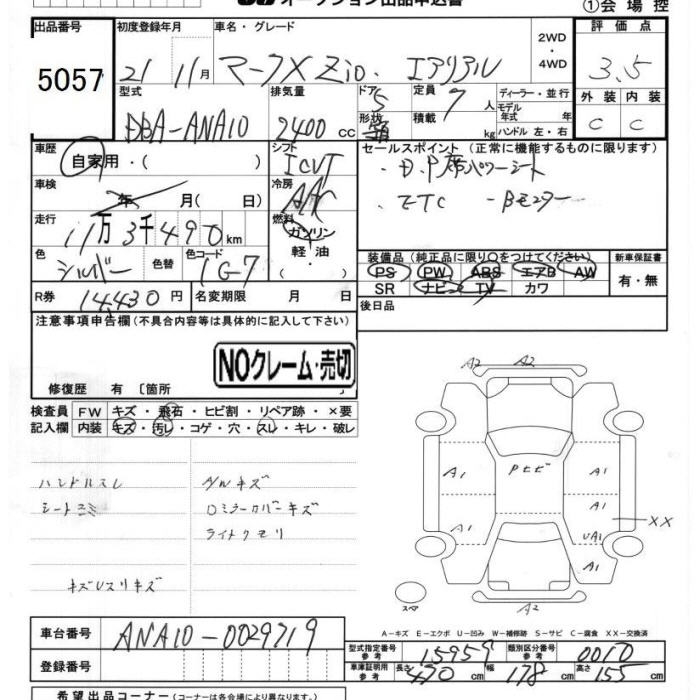 オークション出品申込書
①会場控
出品番号 初度登録年月 車名・グレード 2WD・4WD 評価点
5057 21 11月 マークXZio. エアリアル 3.5
型式 排気量 ドア 定員 ディーラー・並行 外装 内装
DBA-ANA10 2400cc 5 7人 モデル年式 年 C C
形状 積載 kg ハンドル 左・右
車歴 シフト セールスポイント(正常に機能するものに限ります)
自家用・( ) ICVT ・D.P席パワーシート
車検 冷房 ・ETC -Bモニター
年 月( 日) AAC
走行 燃料
11万3千490km ガソリン・軽油・( )
色 色替 カラーコード 装備品(純正品に限り〇をつけてください) 新車保証書
シルバー 1G7 PS PW ABS エアB AW 有・無
SR ナビ TV カワ
R券 14,430円 名変期限 月 日 後日品
注意事項申告欄(不具合内容等は具体的に記入して下さい)
NOクレーム・売切
修復歴 有〔箇所 〕
検査員 FW キズ・飛石・ヒビ割・リペア跡・×要
記入欄 内装 キズ・汚レ・コゲ・穴・スレ・キレ・破レ
A2 A2
ハンドルスレ A/Wキズ
シートシミ Dミラーカバーキズ
ライトクモリ
キズUスリキズ
Pヒビ
A1 A1
A1 A1
UA1 XX
A1
A2
スペア
A-キズ E-エクボ U-凹み W-補修跡 S-サビ C-腐食 XX-交換済
車台番号 ANA10-0029719
型式指定番号 参考 15959 類別区分番号 参考 0010
登録番号 車庫証明用 参考 長さ 470cm 幅 178cm 高さ 155cm
希望出品コーナー(コーナーは各会場により異なります。)